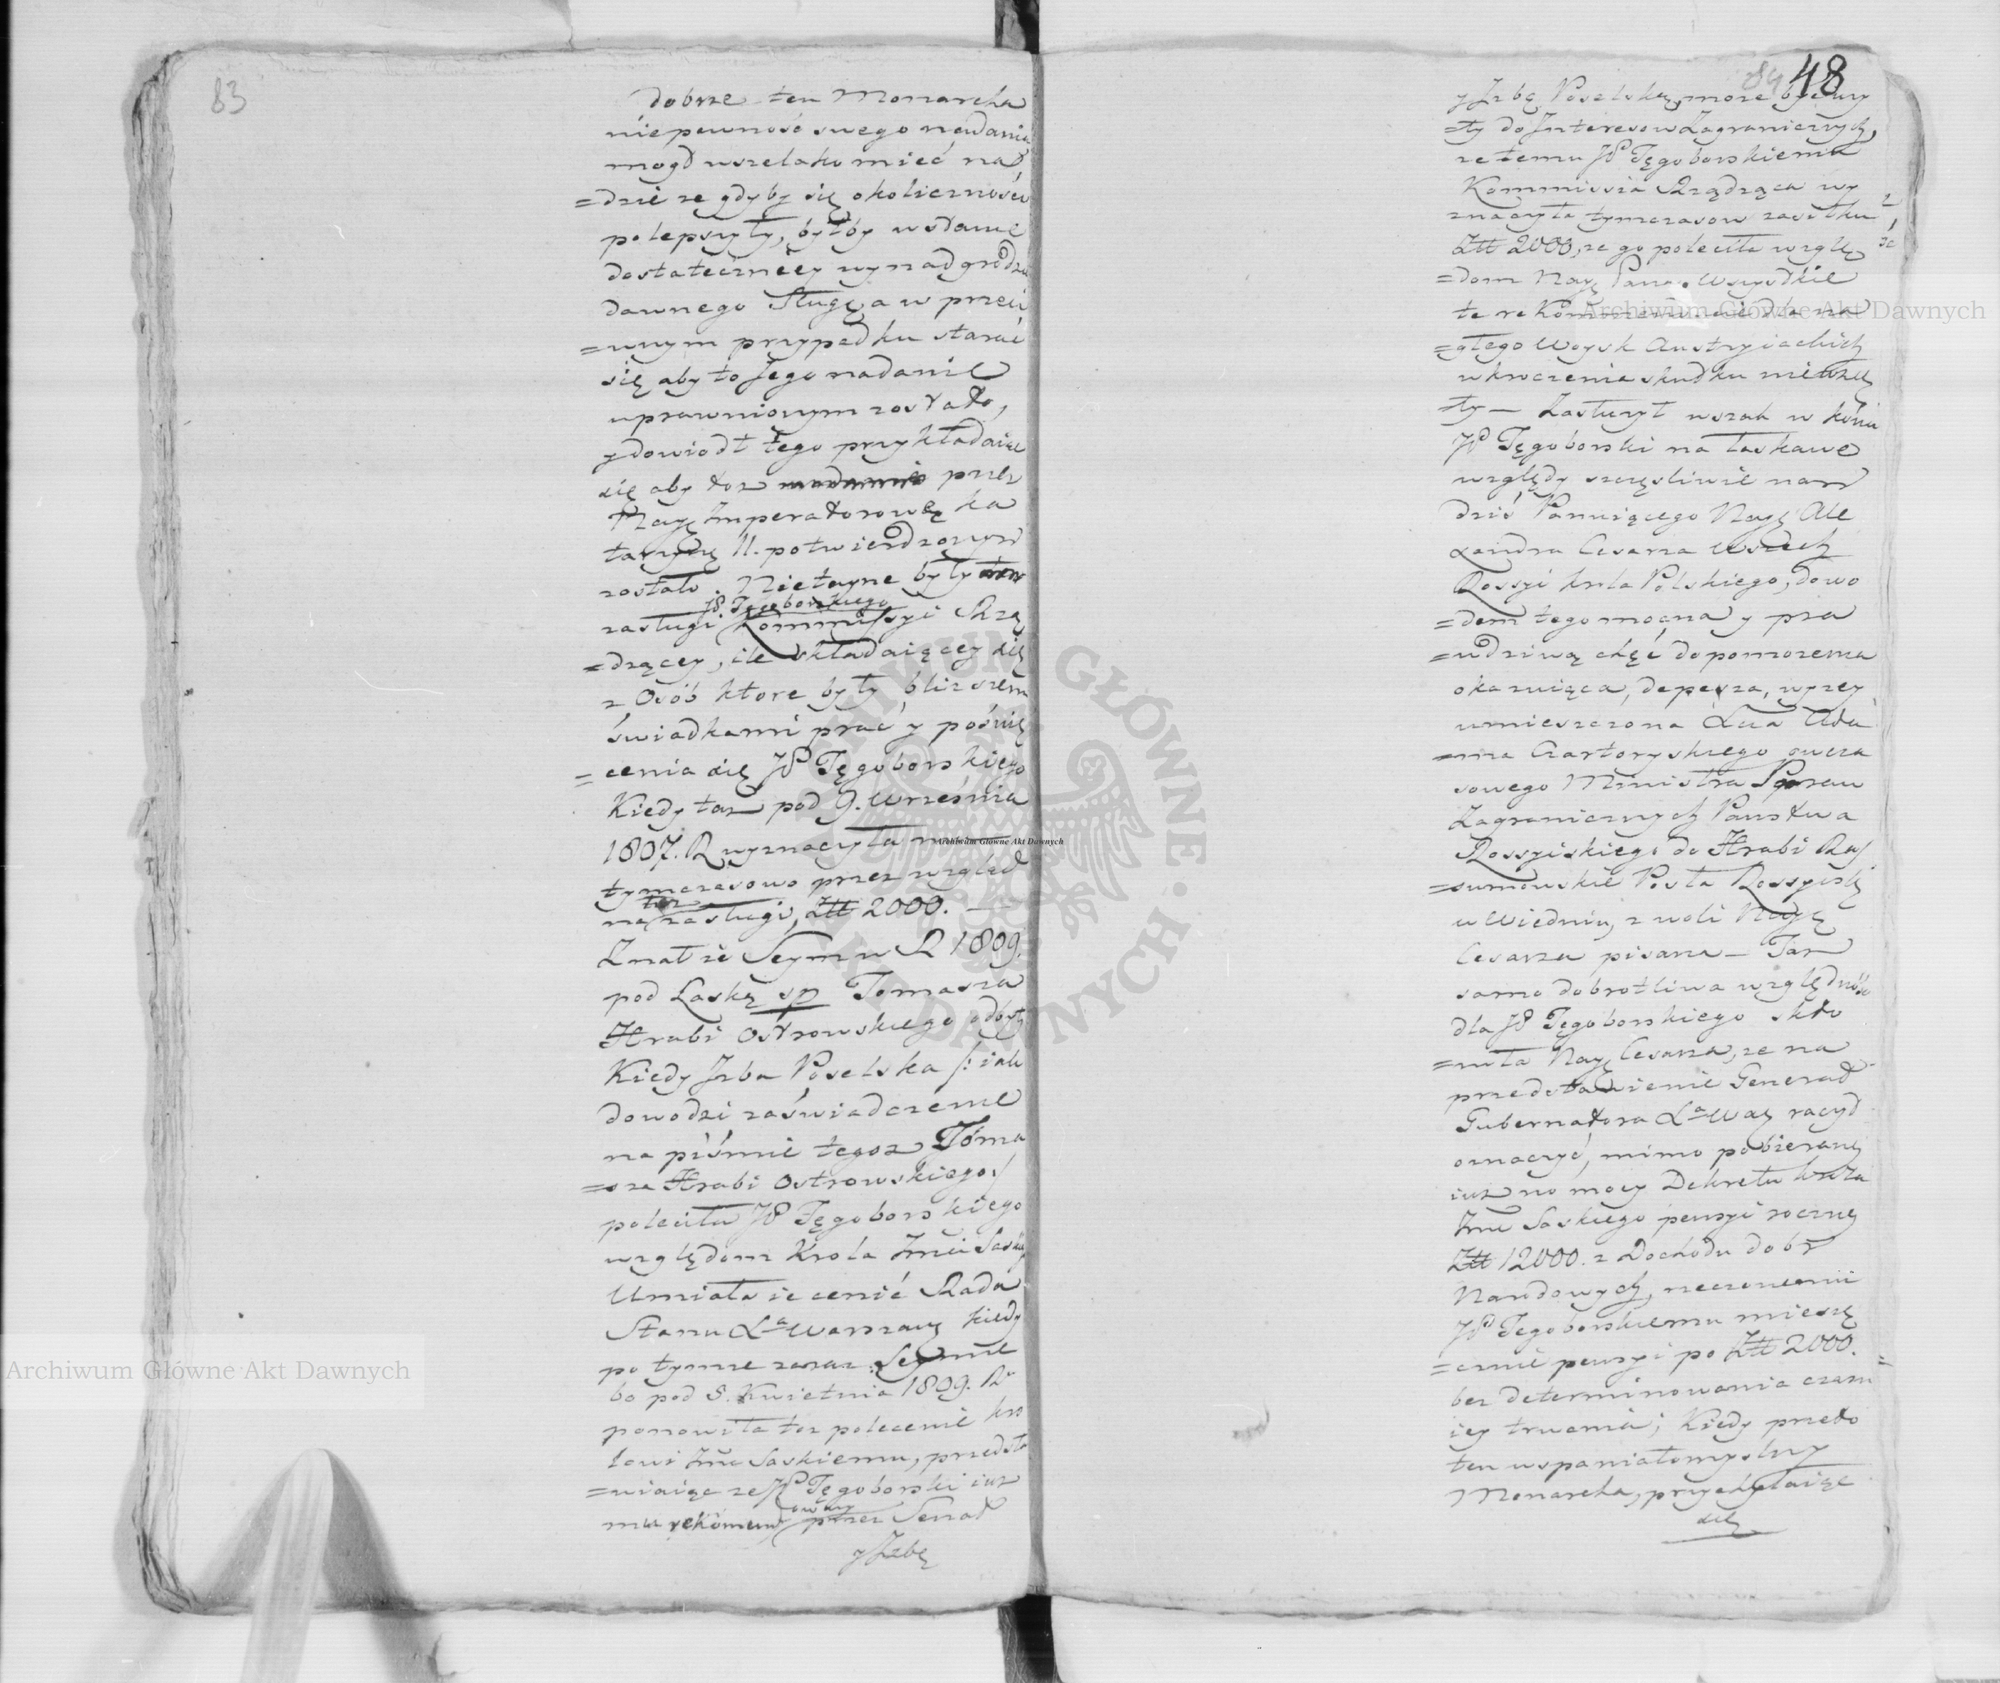 83
dobrze ten Monarcha
niepewność swego nadania
mogł wszelako mieć na
=dzie ze gdyby się okoliczności
polepszyły, byłby wstanie
dostateczniey wynadgrodzić
dawnego Sługę, a w przeci
=wnym przypadku starać
się aby to Jego nadanie
uprawnionym zostało,
y dowiodł tego przykładaiąc
się aby toz przez
Nayę Imperatorowę Ka
tarzynę II. potwierdzonym
zostało. Nietayne były
JP. Tęgoborskiego
zasługi Kommissyi Rzą
=dzącey, ile składaiącey się
z Osób ktore były bliższemi
świadkami prac y poświę
=cenia się JP Tęgoborskiego
Kiedy taz pod 9. Września
1807. R wyznaczyła mu
tymczasowo przez wzgląd
na też zasługi, Złt 2000. —
Znał ie Seym w R 1809.
pod Laską sp Tomasza
Hrabi Ostrowskiego odbyty
Kiedy Izba Poselska /: iak
dowodzi zaświadczenie
na piśmie tegoz Toma
=sza Hrabi Ostrowskiego/
poleciła JP Tęgoborskiego
względom Krola Jmći Saskiego
Umiała ie cenić Rada
Stanu Xa Warszawy kiedy
po tymze zaraz Seymie
bo pod 8. Kwietnia 1809. R
ponowiła toz polecenie Kro
lowi Jmć Saskiemu, przedsta
=wiaiąc ze JP Tęgoborski iuz
mu rekomendowany przez Senat
y Izbę
84 48
y Izbę Poselską, może być
=ty do Interesow Zagranicznych,
ze temu JP Tęgoborskiemu
Kommissia Rządząca wy
znaczyła tymczasow zasiłku
Złt 2000, ze go poleciła wzglę
=dom Nayę Pana. Wszystkie
te rekomendacie dla na
=głego Woysk Austryiackich
wkroczenia skutku niewzię
ły — Zasłużył wszak w końcu
JP Tęgoborski na łaskawe
względy szczęśliwie nam
dziś Panuiącego Nayę Ale
xandra Cesarza Wszech
Rossyi Krola Polskiego, dowo
=dem tego mocna y pra
=wdziwą chęć dopomozenia
okazuiąca, depesza, wyzey
umieszczona Xcia Ada
=ma Czartoryskiego owcza
sowego Ministra Spraw
Zagranicznych Panstwa
Rossyiskiego do Hrabi Ra/
=sumowskie Posła Rossyiskę
w Wiedniu, z woli Nayę
Cesarza pisana — Taz
sama dobrotliwa względność
dla JP Tęgoborskiego skło
=niła Nayę Cesarza, ze na
przedstawienie Generał
Gubernatora Xa Way raczył
oznaczyć, mimo pobieraney
iuz na mocy Dekretu Krola
Jmć Saskiego pensyi roczney
Złt 12000. z Dochodu dobr
Narodowych, rzeczonemu
JP Tęgoborskiemu miesię
=cznie pensyi po Złt 2000.
bez determinowania czasu
iey trwania; Kiedy przeto
ten wspaniałomyslny
Monarcha, przychylaiąc
się
Archiwum Główne Akt Dawnych
Archiwum Główne Akt Dawnych
Archiwum Główne Akt Dawnych
ARCHIWUM GŁÓWNE AKT DAWNYCH